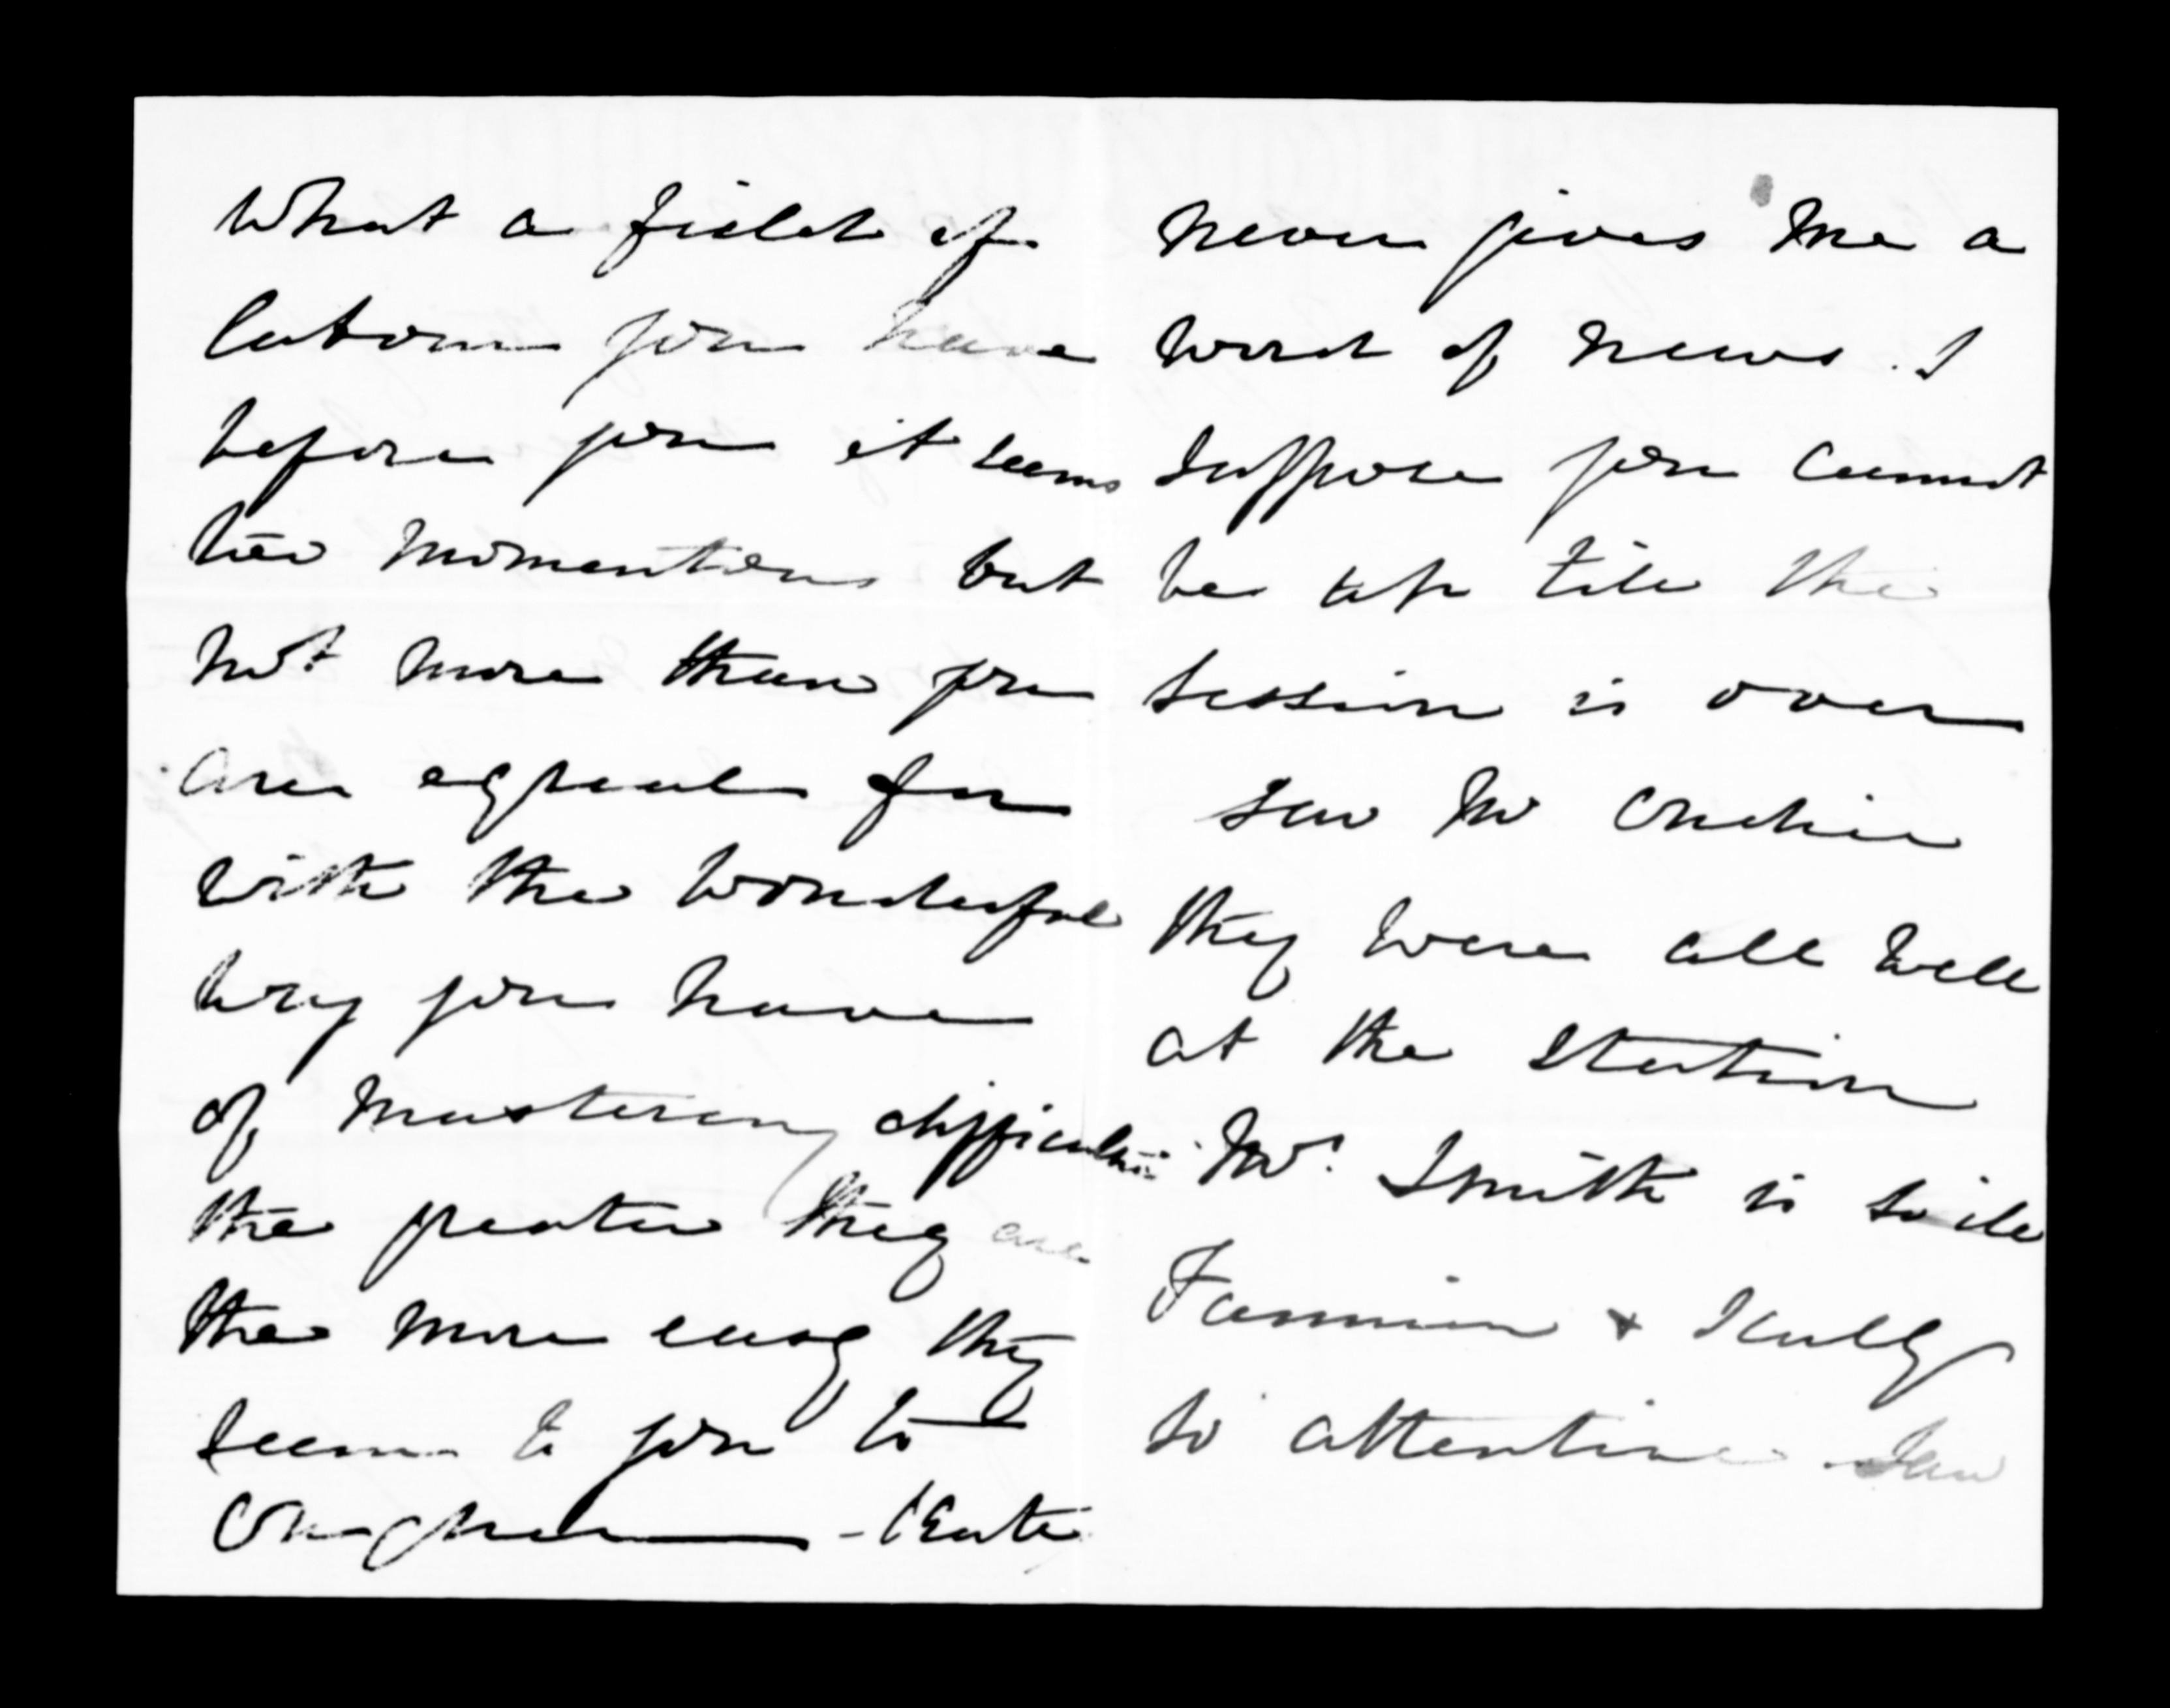 What a field of
labour you have
before you it seems
too momentous but
not more than you
are equal for
with the wonderful
way you have
of mastering difficulties
the greater they are
the more easy they
seem to you to
conquer - Kate
never gives me a
word of news. I
suppose you cannot
be up till the
session is over
saw Mr
they were all well
at the Station
Mrs Smith is so ill
Fannin & Scully
so attentive saw